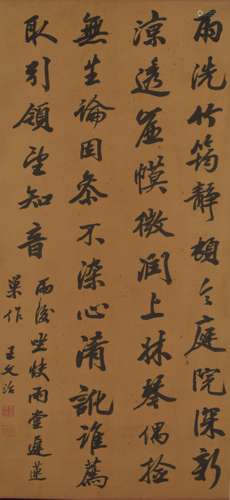 雨洗竹筠静頓令庭院深新
涼透簾幙微潤上牀琴偶捡
無生論因叅不染心清訛誰薦
取引領望知音
雨後坐快雨堂遲蓮
巢作 王文治